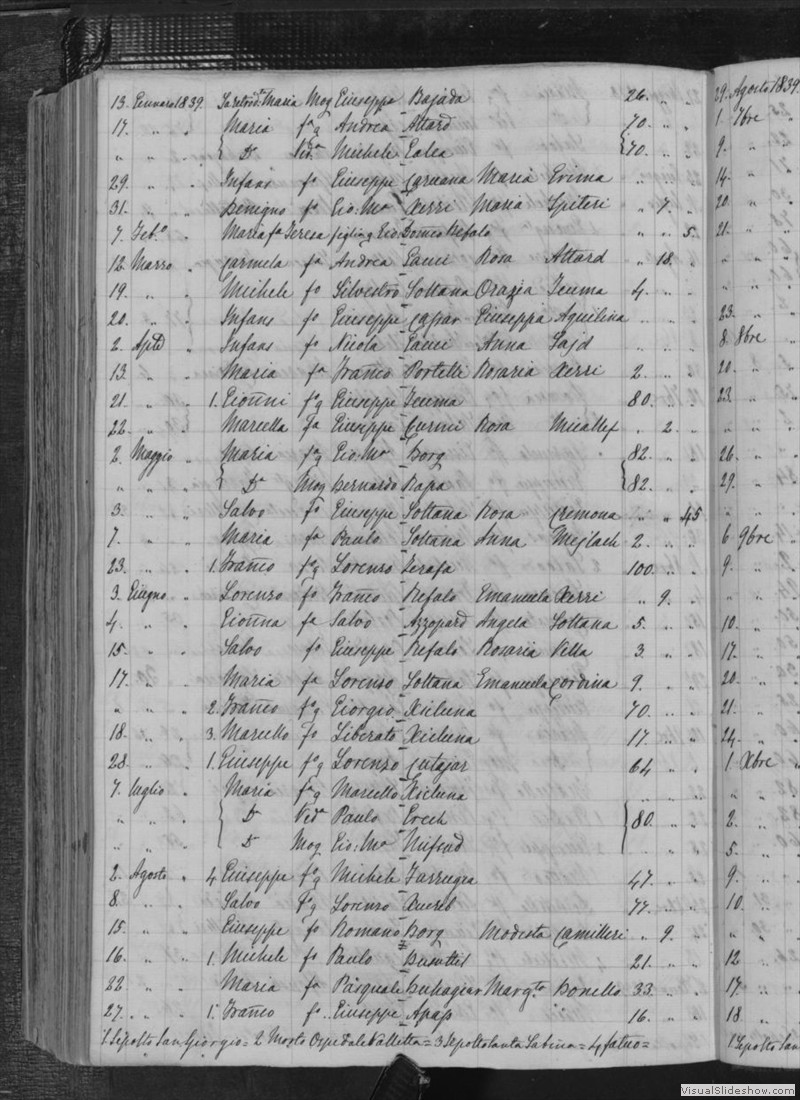 13. Gennaro 1839. Maria Mog Giuseppe Bajada 26. " "
17. " " Maria fa g Andrea Attard 70. " "
" " " { Da Vida Michele Galea {70. " "
29. " " Infans fo Giuseppe Caruana Maria Grima " " "
31. " " Benigno fo Gio: Ma Xerri Maria Spiteri " 7. "
7. Febo " Maria fa Teresa Refalo " " 5.
12. Marzo " Carmela fa Andrea Gauci Rosa Attard " 18. "
19. " " Michele fo Silvestro Soltana Orazia Teuma 4. " "
20. " " Infans fo Giuseppe Caspar Giuseppa Aquilina " " "
2. Aprle " Infans fo Nicola Gauci Anna Sajd " " "
13. " " Maria fa Franco Portelli Rosaria Xerri 2. " "
21. " " 1. Gionni fo g Giuseppe Teuma 80. " "
22. " " Marcella fa Giuseppe Curmi Rosa Micallef " 2. "
2. Maggio " Maria fa g Gio: Ma Borg {82. " "
" " " { Da Mog Bernardo Rapa {82. " "
3. " " Salvo fo Giuseppe Soltana Rosa Cremona " " 45
7. " " Maria fa Paulo Soltana Anna Mejlach 2. " "
23. " " 1. Franco fo g Lorenzo Zerafa 100. " "
3. Giugno " Lorenzo fo Franco Refalo Emanuela Xerri " 9. "
4. " " Gionna fa Salvo Azzopard Angela Soltana 5. " "
15. " " Salvo fo Giuseppe Refalo Rosaria Vella 3. " "
17. " " Maria fa Lorenzo Soltana Emanuela Cordina 9. " "
" " " 2. Franco fo g Giorgio Xicluna 70. " "
18. " " 3. Marcello fo Liberato Xicluna 17. " "
28. " " 1. Giuseppe fo g Lorenzo Cutajar 64 " "
7. Luglio " Maria fa g Marcello Xicluna " " "
" " " { Da Vida Paulo Grech }80. " "
" " " Da Mog Gio: Ma Mifsud " "
2. Agosto " 4 Giuseppe fo g Michele Farrugia 47. " "
8. " " Salvo fo g Lorenzo Xuereb 77. " "
15. " " Giuseppe fo Romano Borg Modesta Camilleri " 9. "
16. " " 1. Michele fo Paulo Busuttil 21. " "
22. " " Maria fa Pasquale Buhagiar Margta Bonello 33. " "
27. " " 1. Franco fo Giuseppe Apap 16. " "
1 Sepolto San Giorgio = 2 Morto Ospedale Valletta = 3 Sepolto Santa Sabina = 4 fatuo =
29. Agosto 1839.
1. 7bre
9. "
14. "
20. "
21. "
" "
" "
23. "
8. 8bre
20. "
23. "
" "
26. "
29. "
" "
6 9bre
9. "
" "
10. "
17. "
20. "
21. "
24. "
1 Xbre
" "
2. "
5. "
9. "
10. "
" "
12 "
17. "
18 "
1 Sepolto San
VisualSlideshow.com